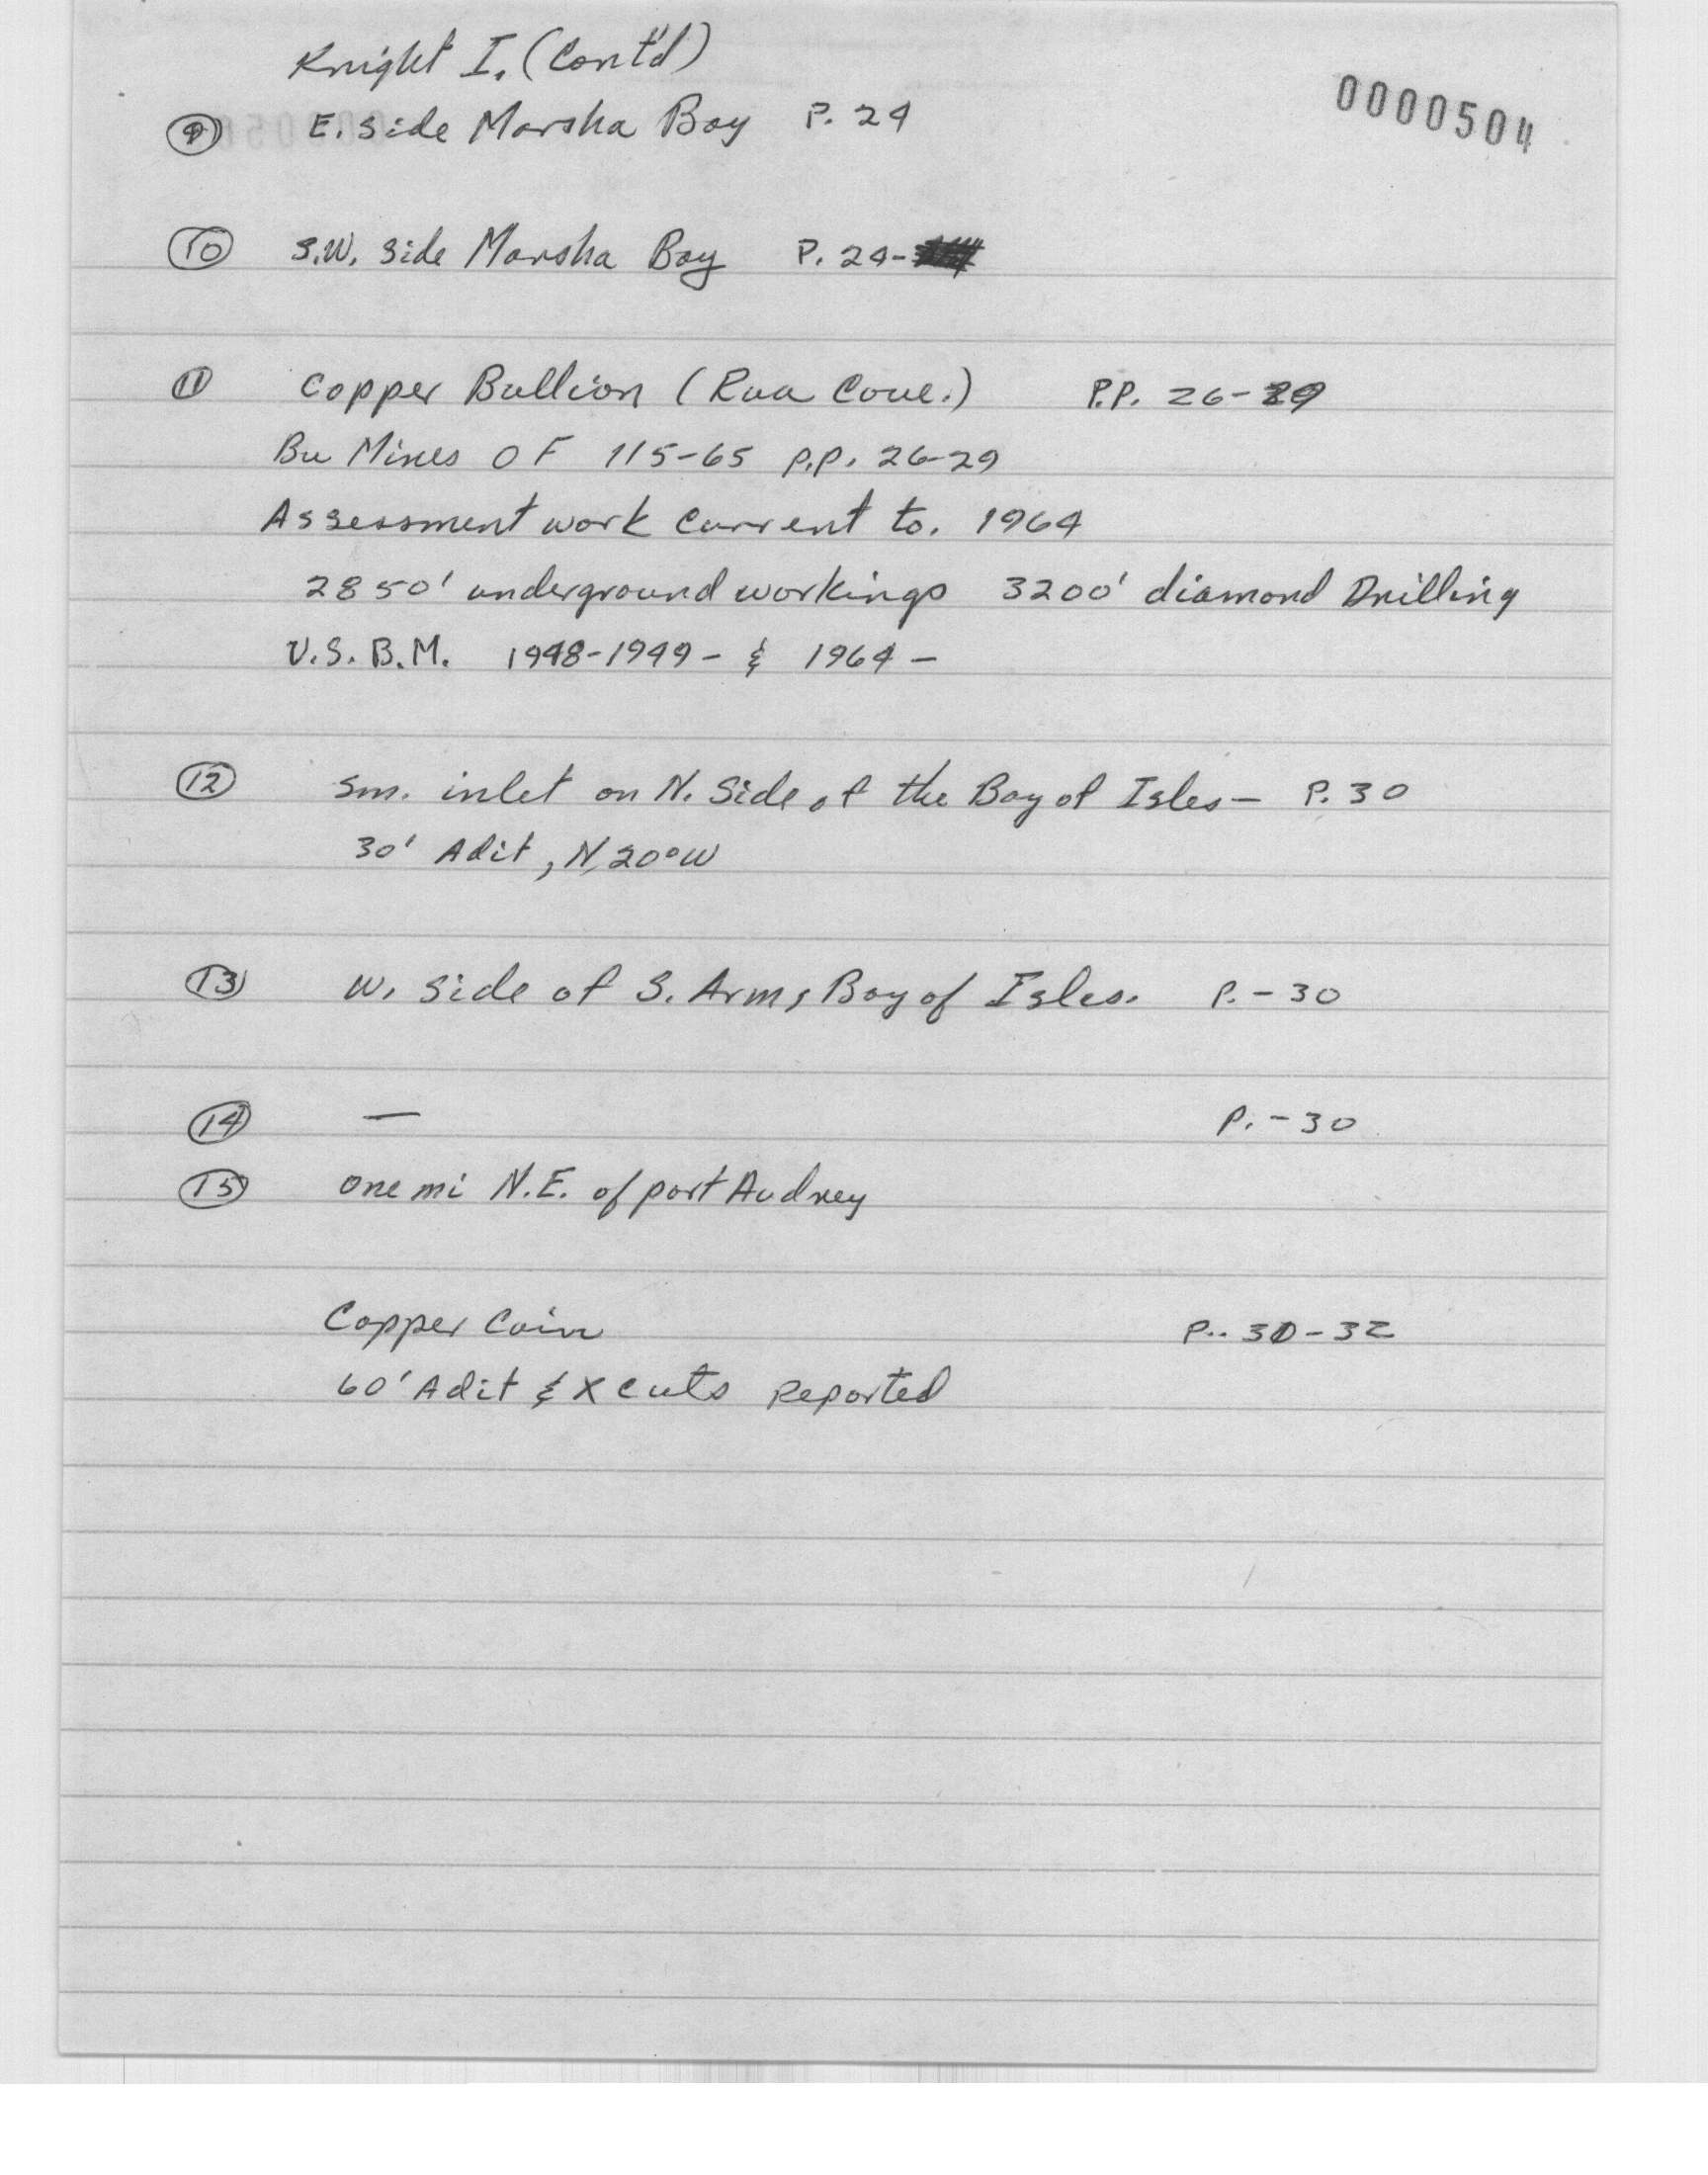 Knight I. (Cont'd)
0000504
9 E. Side Marsha Bay P. 24
10 S.W. Side Marsha Bay P. 24-
11 Copper Bullion (Rua Cove.) P.P. 26-29
Bu Mines OF 115-65 P.P. 26-29
Assessment work current to. 1964
2850' underground workings 3200' diamond Drilling
U.S.B.M. 1948-1949- & 1964-
12 Sm. inlet on N. Side of the Bay of Isles- P. 30
30' Adit, N 20°W
13 W. Side of S. Arm, Bay of Isles. P.-30
14 — P.-30
15 One mi N.E. of port Audrey
Copper Coin P.. 30-32
60' Adit & X cuts Reported